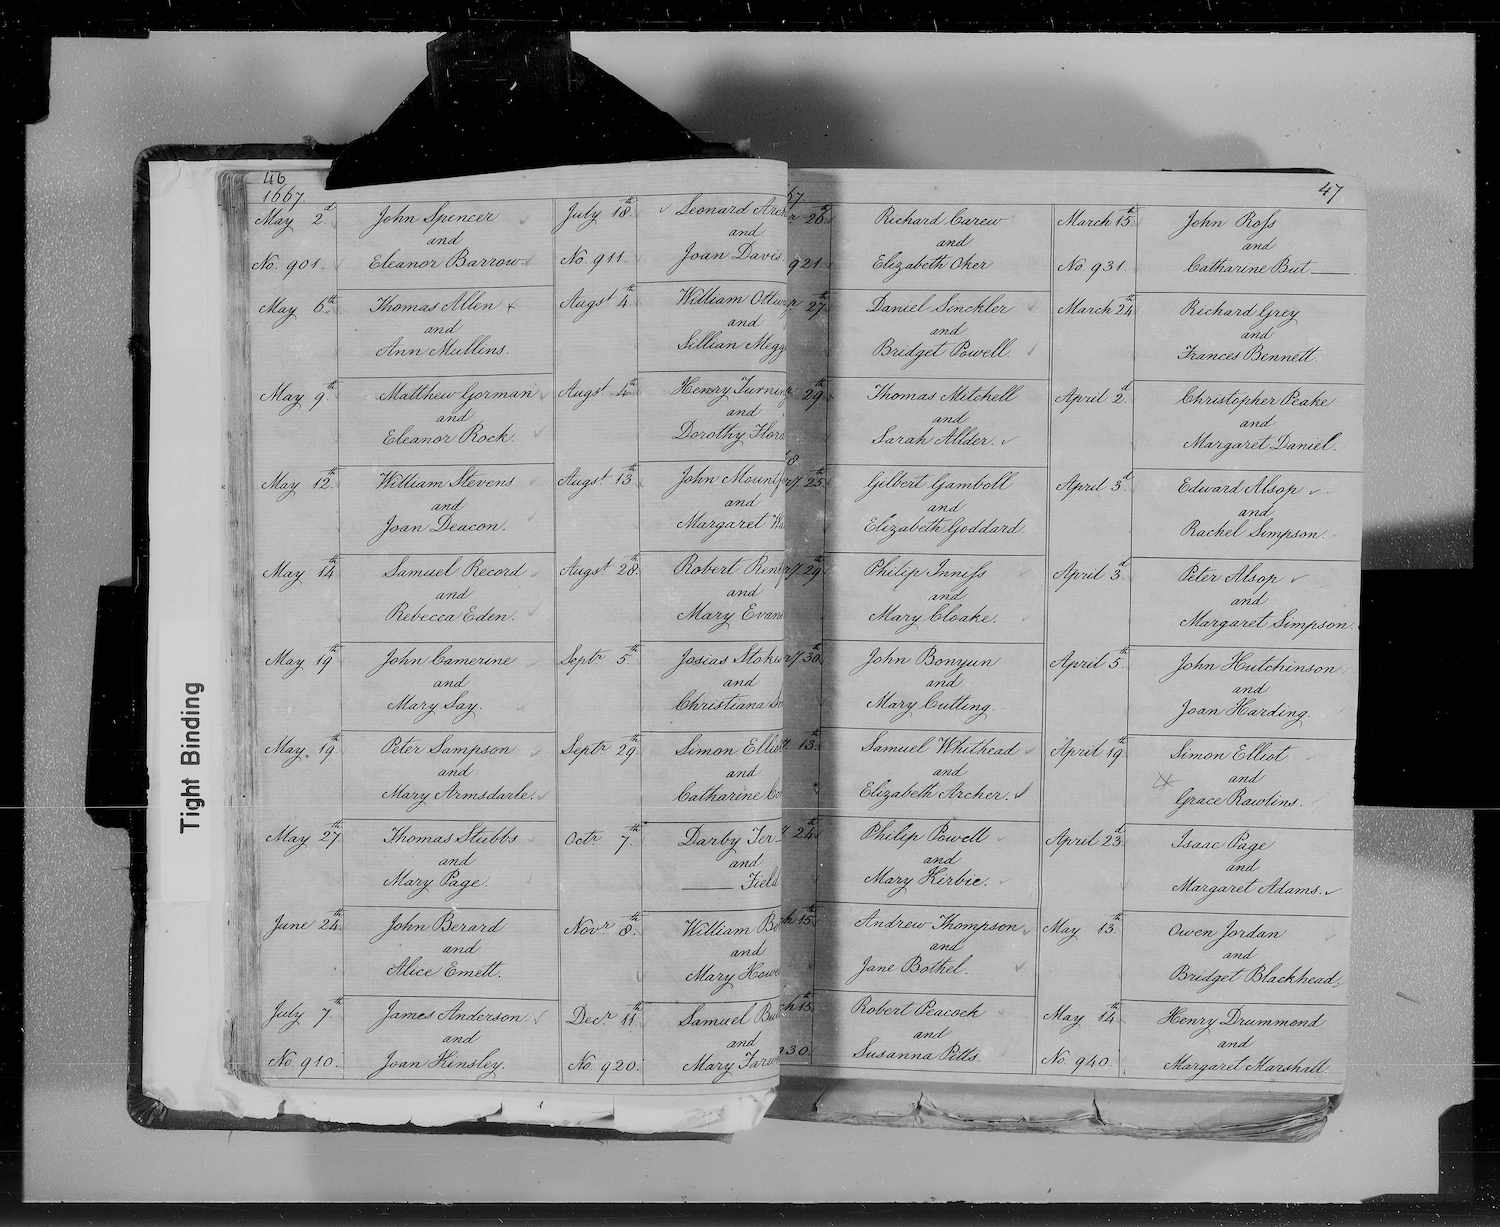 Tight Binding
46
1667
May 2d
John Spencer
and
No. 901.
Eleanor Barrow
May 6th
Thomas Allen
and
Ann Mullins.
May 9th
Matthew Gorman
and
Eleanor Rock.
May 12th
William Stevens
and
Joan Deacon.
May 14th
Samuel Record
and
Rebecca Eden.
May 19th
John Camerine
and
Mary Say.
May 19th
Peter Sampson
and
Mary Armsdarle.
May 27th
Thomas Stubbs
and
Mary Page.
June 24th
John Berard
and
Alice Emett.
July 7th
James Anderson
and
No. 910.
Joan Hinsley.
July 18th
Leonard
and
No. 911.
Joan Davis
Augst 4th
William
and
Lillian
Augst 4th
Henry
and
Dorothy
Augst 13th
John
and
Margaret
Augst 28th
Robert
and
Mary Evans
Septr 5th
Josias
and
Christiana
Septr 29th
Simon
and
Catharine
Octr 7th
Darby
and
Field
Novr 8th
William
and
Mary
Decr 11th
Samuel
and
No. 920.
Mary
67
26th
Richard Carew
and
921
Elizabeth Oker
27th
Daniel Sinckler
and
Bridget Powell.
29th
Thomas Mitchell
and
Sarah Allder.
8
25th
Gilbert Gamboll
and
Elizabeth Goddard.
29th
Philip Inniss
and
Mary Cloake.
30th
John Bonyun
and
Mary Cutting.
13th
Samuel Whithead
and
Elizabeth Archer.
24th
Philip Powell
and
Mary Kirbie.
15th
Andrew Thompson
and
Jane Bothel.
15th
Robert Peacock
and
930.
Susanna Pitts.
47
March 15th
John Ross
and
No. 931.
Catharine But
March 24th
Richard Grey
and
Frances Bennett.
April 2d
Christopher Peake
and
Margaret Daniel.
April 3d
Edward Alsop
and
Rachel Simpson.
April 3d
Peter Alsop
and
Margaret Simpson.
April 5th
John Hutchinson
and
Joan Harding.
April 19th
Simon Elliot
and
Grace Rawlins.
April 23d
Isaac Page
and
Margaret Adams.
May 13th
Owen Jordan
and
Bridget Blackhead.
May 14th
Henry Drummond
and
No. 940.
Margaret Marshall.